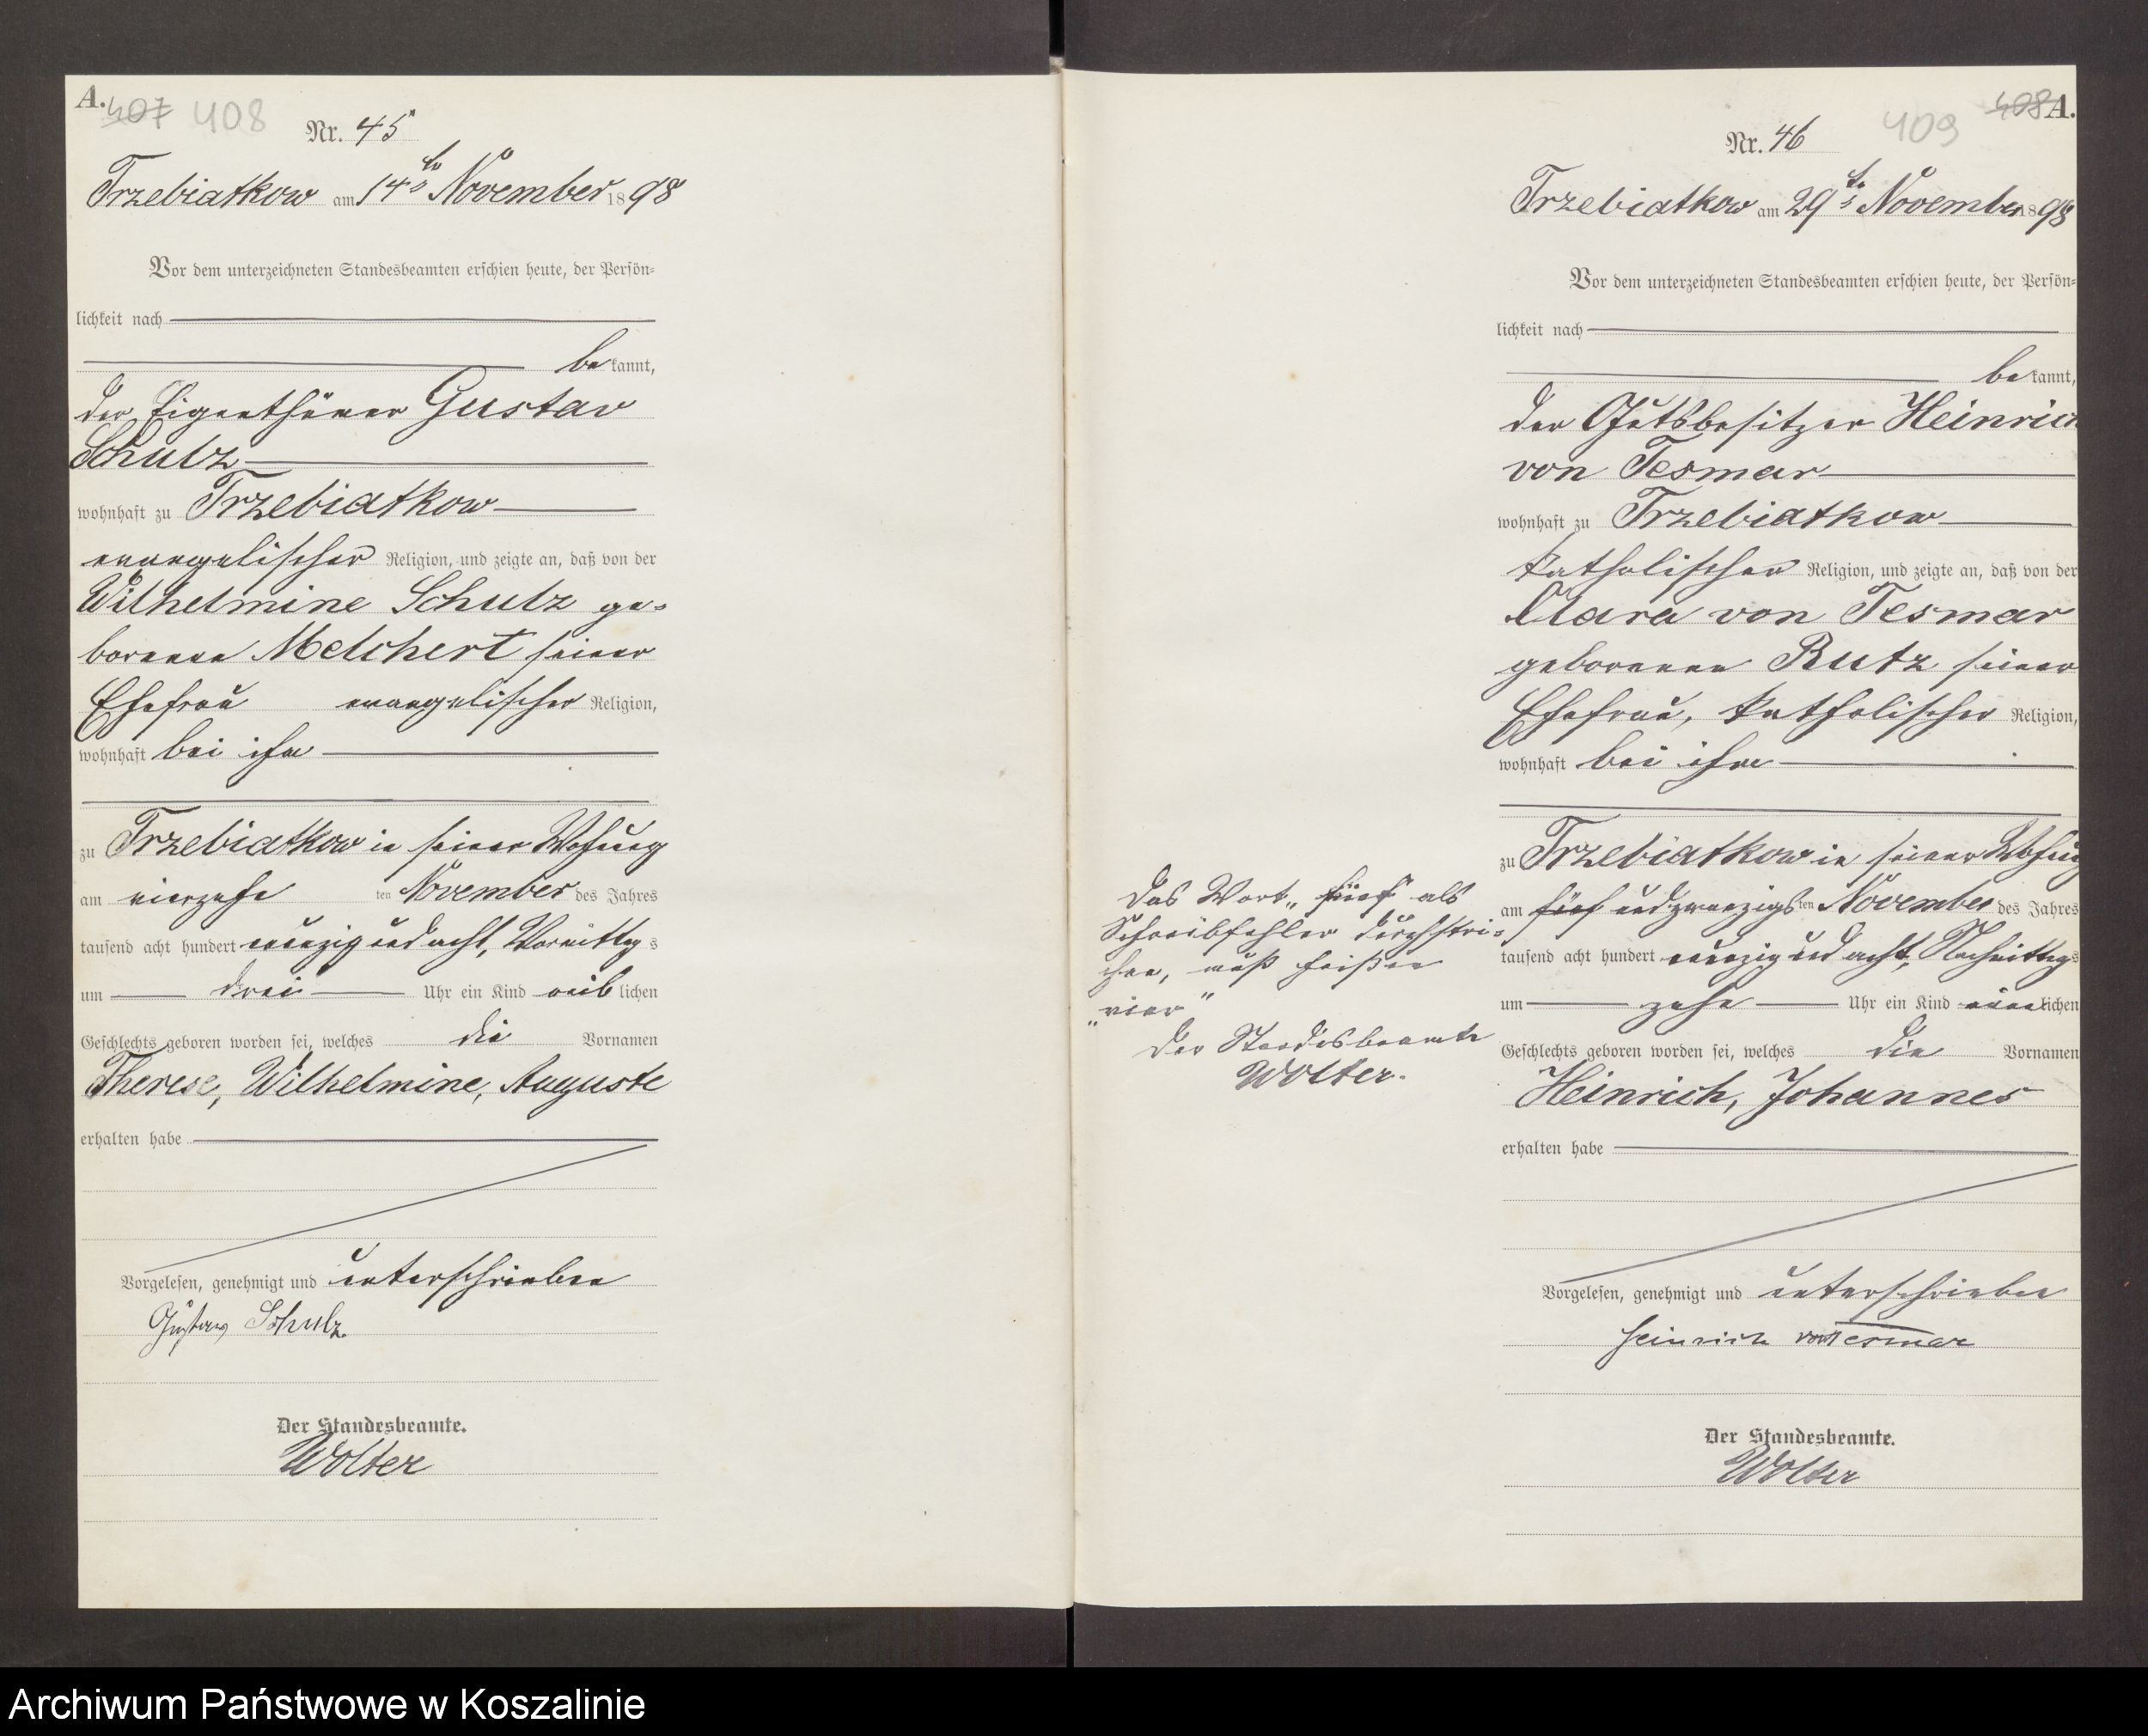 A. 407 408
Nr. 45
Trzebiatkow am 14ten November 1898
Vor dem unterzeichneten Standesbeamten erschien heute, der Persön=
lichkeit nach
be kannt,
der Eigenthümer Gustav
Schulz
wohnhaft zu Trzebiatkow
evangelischer Religion, und zeigte an, daß von der
Wilhelmine Schulz ge=
borenen Melchert seiner
Ehefrau evangelischer Religion,
wohnhaft bei ihm
zu Trzebiatkow in seiner Wohnung
am vierzehn ten November des Jahres
tausend acht hundert neunzig und acht, Vormittags
um drei Uhr ein Kind weib lichen
Geschlechts geboren worden sei, welches die Vornamen
Therese, Wilhelmine, Auguste
erhalten habe
Vorgelesen, genehmigt und unterschrieben
Gustav Schulz.
Der Standesbeamte.
Wolter
409 408 A.
Nr. 46
Trzebiatkow am 29ten November 1898
Vor dem unterzeichneten Standesbeamten erschien heute, der Persön=
lichkeit nach
be kannt,
der Gutsbesitzer Heinrich
von Tesmar
wohnhaft zu Trzebiatkow
katholischer Religion, und zeigte an, daß von der
Clara von Tesmar
geborenen Rutz seiner
Ehefrau, katholischer Religion,
wohnhaft bei ihm
zu Trzebiatkow in seiner Wohnung
am fünf und zwanzigsten November des Jahres
tausend acht hundert neunzig und acht, Nachmittags
um zehn Uhr ein Kind männlichen
Geschlechts geboren worden sei, welches die Vornamen
Heinrich, Johannes
erhalten habe
Vorgelesen, genehmigt und unterschrieben
Heinrich von Tesmar
Der Standesbeamte.
Wolter
Das Wort „fünf" als
Schreibfehler durchstri=
chen, muß heißen
„vier"
Der Standesbeamte
Wolter.
Archiwum Państwowe w Koszalinie